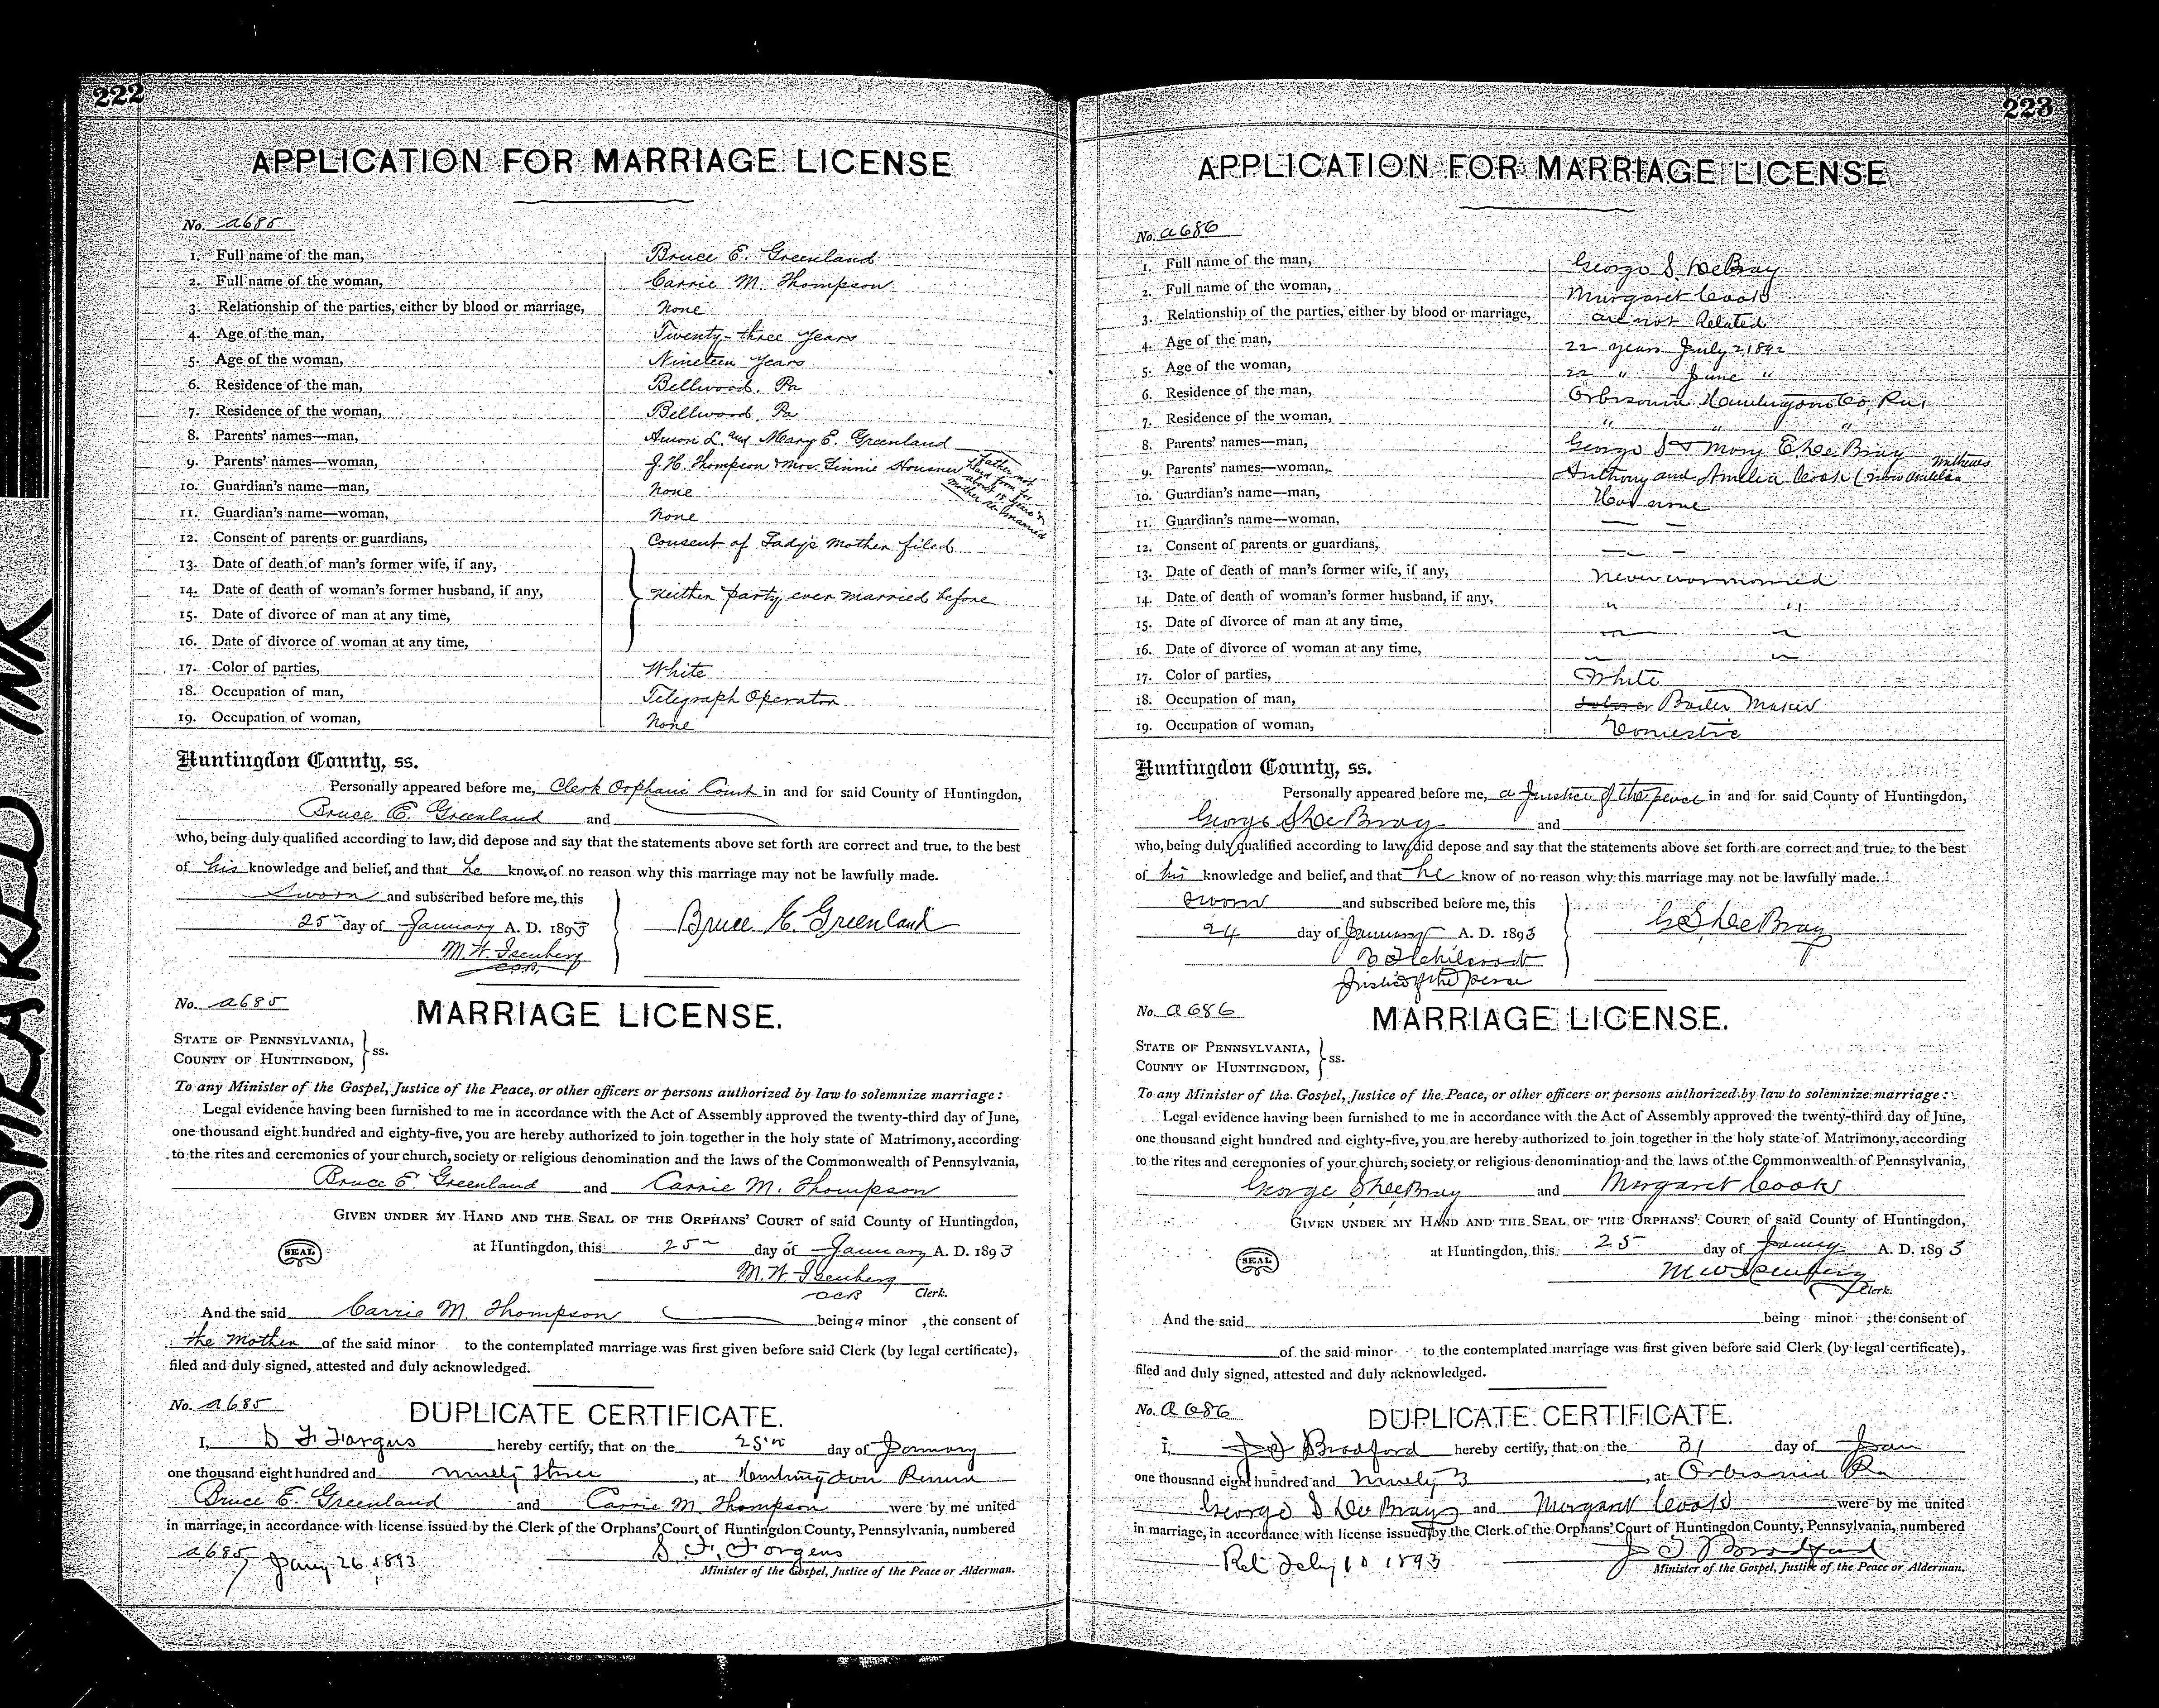 SMEARED INK
222
APPLICATION FOR MARRIAGE LICENSE
No. a685
1. Full name of the man, Bruce E. Greenland
2. Full name of the woman, Carrie M. Thompson
3. Relationship of the parties, either by blood or marriage, None
4. Age of the man, Twenty-three years
5. Age of the woman, Nineteen years
6. Residence of the man, Bellwood, Pa
7. Residence of the woman, Bellwood, Pa
8. Parents' names—man, Amon L. and Mary E. Greenland
9. Parents' names—woman, J. H. Thompson & Mrs. Linnie Housner
Father not
heard from for
about 18 years &
mother remarried
10. Guardian's name—man, None
11. Guardian's name—woman, None
12. Consent of parents or guardians, Consent of Lady's Mother filed
13. Date of death of man's former wife, if any,
14. Date of death of woman's former husband, if any, neither party ever married before
15. Date of divorce of man at any time,
16. Date of divorce of woman at any time,
17. Color of parties, White
18. Occupation of man, Telegraph Operator
19. Occupation of woman, None
Huntingdon County, ss.
Personally appeared before me, Clerk Orphans Court in and for said County of Huntingdon,
Bruce E. Greenland and
who, being duly qualified according to law, did depose and say that the statements above set forth are correct and true, to the best
of his knowledge and belief, and that he knows of no reason why this marriage may not be lawfully made.
Sworn and subscribed before me, this
25 day of January A. D. 1893
Bruce E. Greenland
M. W. Isenberg
C.O.C.
No. a685
MARRIAGE LICENSE.
STATE OF PENNSYLVANIA,
COUNTY OF HUNTINGDON, ss.
To any Minister of the Gospel, Justice of the Peace, or other officers or persons authorized by law to solemnize marriage:
Legal evidence having been furnished to me in accordance with the Act of Assembly approved the twenty-third day of June,
one thousand eight hundred and eighty-five, you are hereby authorized to join together in the holy state of Matrimony, according
to the rites and ceremonies of your church, society or religious denomination and the laws of the Commonwealth of Pennsylvania,
Bruce E. Greenland and Carrie M. Thompson
GIVEN UNDER MY HAND AND THE SEAL OF THE ORPHANS' COURT of said County of Huntingdon,
SEAL
at Huntingdon, this 25 day of January A. D. 1893
M. W. Isenberg
Clerk.
And the said Carrie M. Thompson being a minor, the consent of
the Mother of the said minor to the contemplated marriage was first given before said Clerk (by legal certificate),
filed and duly signed, attested and duly acknowledged.
No. a685
DUPLICATE CERTIFICATE.
I, D F Fargus hereby certify, that on the 25th day of January
one thousand eight hundred and ninety three, at Huntingdon Penna
Bruce E. Greenland and Carrie M. Thompson were by me united
in marriage, in accordance with license issued by the Clerk of the Orphans' Court of Huntingdon County, Pennsylvania, numbered
a685
Jany 26, 1893
Minister of the Gospel, Justice of the Peace or Alderman.
223
APPLICATION FOR MARRIAGE LICENSE
No. a686
1. Full name of the man, George S. DeBray
2. Full name of the woman, Margaret Cook
3. Relationship of the parties, either by blood or marriage, are not Related
4. Age of the man, 22 years July 2 1892
5. Age of the woman, 22 " June "
6. Residence of the man, Orbisonia Huntingdon Co, Pa,
7. Residence of the woman, " " "
8. Parents' names—man, George S & Mary E DeBray
9. Parents' names—woman, Anthony and Amelia Cook (now Amelia Mathews
10. Guardian's name—man, Has none
11. Guardian's name—woman, — —
12. Consent of parents or guardians, — —
13. Date of death of man's former wife, if any, never was married
14. Date of death of woman's former husband, if any, " "
15. Date of divorce of man at any time,
16. Date of divorce of woman at any time,
17. Color of parties, White
18. Occupation of man, Laborer Boiler Maker
19. Occupation of woman, Domestic
Huntingdon County, ss.
Personally appeared before me, a Justice of the peace in and for said County of Huntingdon,
George S DeBray and
who, being duly qualified according to law, did depose and say that the statements above set forth are correct and true, to the best
of his knowledge and belief, and that he know of no reason why this marriage may not be lawfully made.
Sworn and subscribed before me, this
24 day of January A. D. 1893
G S DeBray
Justice of the Peace
No. a686
MARRIAGE LICENSE.
STATE OF PENNSYLVANIA,
COUNTY OF HUNTINGDON, ss.
To any Minister of the Gospel, Justice of the Peace, or other officers or persons authorized by law to solemnize marriage:
Legal evidence having been furnished to me in accordance with the Act of Assembly approved the twenty-third day of June,
one thousand eight hundred and eighty-five, you are hereby authorized to join together in the holy state of Matrimony, according
to the rites and ceremonies of your church, society or religious denomination and the laws of the Commonwealth of Pennsylvania,
George S DeBray and Margaret Cook
GIVEN UNDER MY HAND AND THE SEAL OF THE ORPHANS' COURT of said County of Huntingdon,
SEAL
at Huntingdon, this 25 day of January A. D. 1893
M W Isenberg
Clerk.
And the said being minor, the consent of
of the said minor to the contemplated marriage was first given before said Clerk (by legal certificate),
filed and duly signed, attested and duly acknowledged.
No. a686
DUPLICATE CERTIFICATE.
I, J J Bradford hereby certify, that on the 31 day of Jan
one thousand eight hundred and Ninety 3, at Orbisonia Pa
George S DeBray and Margaret Cook were by me united
in marriage, in accordance with license issued by the Clerk of the Orphans' Court of Huntingdon County, Pennsylvania, numbered
Ret Feby 10 1893
Minister of the Gospel, Justice of the Peace or Alderman.